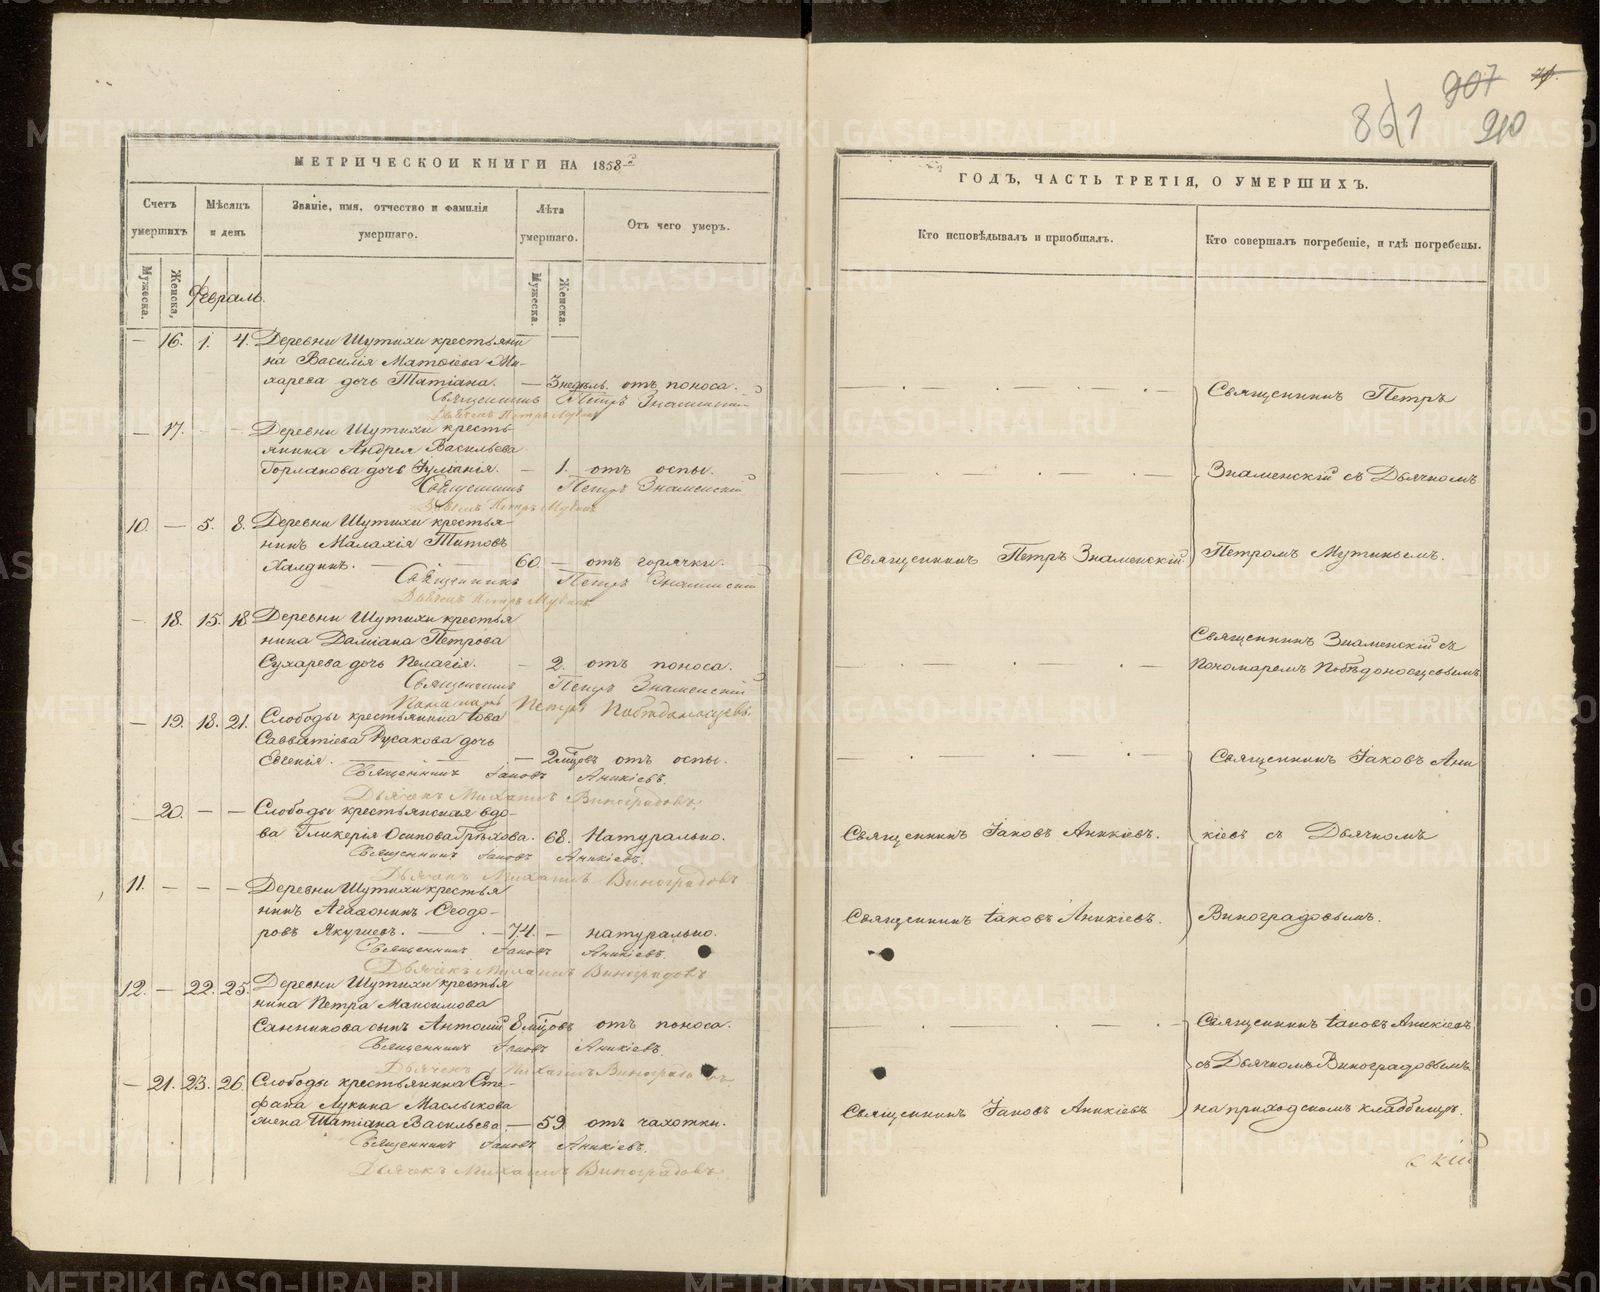 907
861
910
МЕТРИЧЕСКОИ КНИГИ НА 1858
Счетъ умершихъ
Мѣсяцъ и день
Званіе, имя, отчество и фамилія умершаго.
Лѣта умершаго.
Отъ чего умеръ.
Мужеска.
Женска,
Мужеска.
Женска.
Февраль.
— 16. 1. 4. Деревни Шутихи крестьяни
на Василія Матѳіева Ми-
харева дочь Татіана. — 3 недѣль. отъ поноса.
Священникъ Петръ Знаменскій
Дьячекъ Петръ
— 17. — — Деревни Шутихи кресть-
янина Андрея Васильева
Горланова дочь Іуліанія. — 1. отъ оспы.
Священникъ Петръ Знаменскій
Дьячекъ Петръ
10. — 5. 8. Деревни Шутихи крестья-
нинъ Малахія Титовъ
Халдинъ. — 60. — отъ горячки.
Священникъ Петръ Знаменскій
Дьячекъ Петръ
— 18. 15. 18 Деревни Шутихи крестья
нина Даміана Петрова
Сухарева дочь Пелагія. — 2. отъ поноса.
Священникъ Петръ Знаменскій
Пономарь Петръ Побѣдоносцевъ.
— 19. 18. 21. Слободы крестьянина Іова
Савватіева Русакова дочь
Евгенія. — 2 мцовъ отъ оспы.
Священникъ Іаковъ Аникіевъ.
Дьячекъ Михаилъ Виноградовъ.
— 20. — — Слободы крестьянская вдо-
ва Гликерія Осипова Грѣхова. 68. Натурально.
Священникъ Іаковъ Аникіевъ.
Дьячекъ Михаилъ Виноградовъ
11. — — — Деревни Шутихи крестья
нинъ Агаѳоникъ Ѳеодо-
ровъ Якушевъ. — 74. — натурально.
Священникъ Іаковъ Аникіевъ.
Дьячекъ Михаилъ Виноградовъ
12. — 22. 25. Деревни Шутихи крестья
нина Петра Максимова
Санникова сынъ Антоній 8 мцовъ отъ поноса.
Священникъ Іаковъ Аникіевъ.
Дьячекъ Михаилъ Виноградовъ
— 21. 23. 26. Слободы крестьянина Сте-
фана Лукина Маслыкова
жена Татіана Васильева. — 59. отъ чахотки.
Священникъ Іаковъ Аникіевъ.
Дьячекъ Михаилъ Виноградовъ.
ГОДЪ, ЧАСТЬ ТРЕТІЯ, О УМЕРШИХЪ.
Кто исповѣдывалъ и пріобщалъ.
Кто совершалъ погребеніе, и гдѣ погребены.
Священникъ Петръ
Знаменскій съ Дьячкомъ
Священникъ Петръ Знаменскій
Петромъ
Священникъ Знаменскій съ
Пономаремъ Побѣдоносцевымъ.
Священникъ Іаковъ Ани
Священникъ Іаковъ Аникіевъ.
кіевъ съ Дьячкомъ
Священникъ Іаковъ Аникіевъ.
Виноградовымъ.
Священникъ Іаковъ Аникіевъ
съ Дьячкомъ Виноградовымъ
Священникъ Іаковъ Аникіевъ
на приходскомъ кладбищѣ.
скій
METRIKI.GASO-URAL.RU